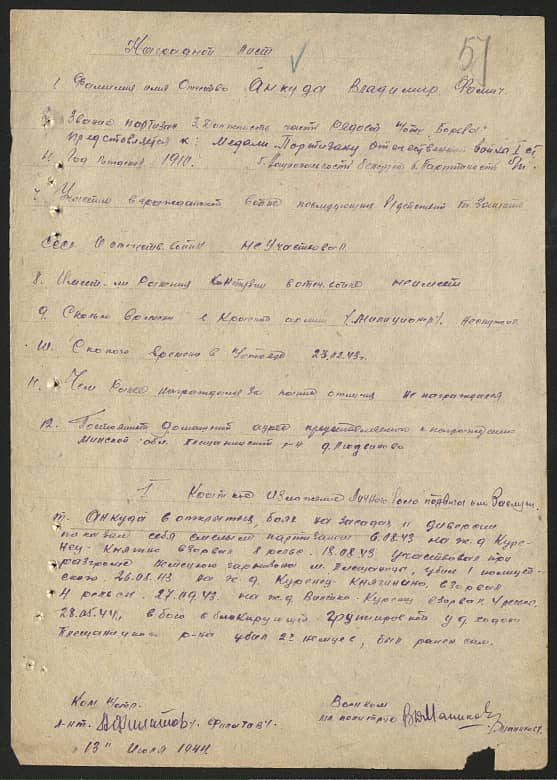 Наградной лист
51
1. Фамилия имя Отчество Анкуда Владимир Фомич
2. Звание партизан 3. Должность часть рядост "отр. Борьба"
Представляется к: Медали Партизану Отечественной войны I ст
4. Год рождения 1910. 5. Национальность Белорус 6. Партийность б/п.
7. Участие в гражданской войне последующих действиях по защите
СССР Отечеств. войны не участвовал
8. Имеет ли ранения контузии в отеч. войне не имеет
9. Сколько времени в Красной армии (Милиционер).
10. С какого времени в отряде 23.02.43г.
11. Чем ранее награждался за какие отличия не награждался
12. Постоянный домашний адрес представляемого к награждению
Минской обл. Плещаницкий р-н д.
I Краткое изложение личного боево подвига или заслуги
т. Анкуда в открытых боях на засадах и диверсии
показал себя смелым партизаном 6.08.43 на ж.д Куре-
нец-Княжно взорвал 8 рельс. 18.08.43 участвовал при
разгроме немецкого гарнизона м. Плещаница, убил 1 полицей-
ского. 26.08.43 на ж.д. Куренец-Княгинино взорвал
4 рельсы. 27.09.43. на ж.д Вилейка-Куренец взорвал 4 рельсы
28.05.44г. в бою с блокирующей группировкой у д
Плещаницкого р-на убил 2х немцев, был ранен сам.
Ком. отр.
л-нт. Филатов /Филатов/.
Военком
мл политрук Маликов
"13" Июля 1944